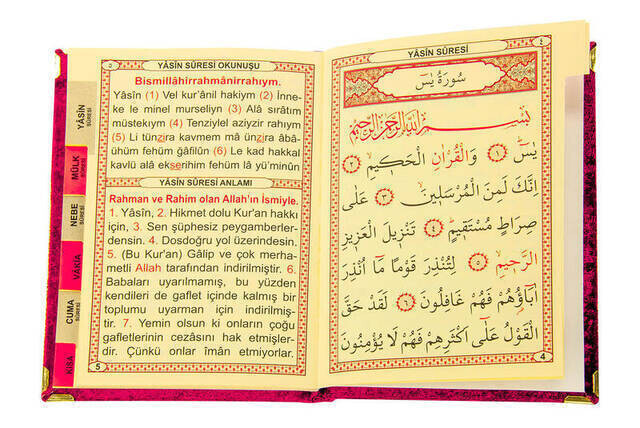 YÂSİN SÛRESİ
٤
سُورَةُ يٰسٓ
بِسْمِ اللّٰهِ الرَّحْمٰنِ الرَّحِيمِ
يٰسٓ ﴿١﴾ وَالْقُرْاٰنِ الْحَك۪يمِ ﴿٢﴾
اِنَّكَ لَمِنَ الْمُرْسَل۪ينَ ﴿٣﴾ عَلٰى
صِرَاطٍ مُسْتَق۪يمٍ ﴿٤﴾ تَنْز۪يلَ الْعَز۪يزِ
الرَّح۪يمِ ﴿٥﴾ لِتُنْذِرَ قَوْمًا مَٓا اُنْذِرَ
اٰبَٓاؤُ۬هُمْ فَهُمْ غَافِلُونَ ﴿٦﴾ لَقَدْ حَقَّ
الْقَوْلُ عَلٰٓى اَكْثَرِهِمْ فَهُمْ لَا يُؤْمِنُونَ
4
٥
YÂSİN SÛRESİ OKUNUŞU
Bismillâhirrahmânirrahıym.
Yâsîn (1) Vel kur'ânil hakiym (2) İnne-
ke le minel murseliyn (3) Alâ sırâtım
müstekıym (4) Tenziylel aziyzir rahıym
(5) Li tünzira kavmem mâ ünzira âbâ-
ühüm fehüm gâfilûn (6) Le kad hakkal
kavlü alâ ekserihim fehüm lâ yü'minûn
YÂSİN SÛRESİ ANLAMI
Rahman ve Rahim olan Allah'ın İsmiyle.
1. Yâsîn, 2. Hikmet dolu Kur'an hakkı
için, 3. Sen şüphesiz peygamberler-
densin. 4. Dosdoğru yol üzerindesin.
5. (Bu Kur'an) Gâlip ve çok merha-
metli Allah tarafından indirilmiştir. 6.
Babaları uyarılmamış, bu yüzden
kendileri de gaflet içinde kalmış bir
toplumu uyarman için indirilmiş-
tir. 7. Yemin olsun ki onların çoğu
gafletlerinin cezasını hak etmişler-
dir. Çünkü onlar îmân etmiyorlar.
5
YÂSİN
SÛRESİ
MÜLK
SÛRESİ
NEBE
SÛRESİ
VÂKIA
CUMA
SÛRESİ
KISA